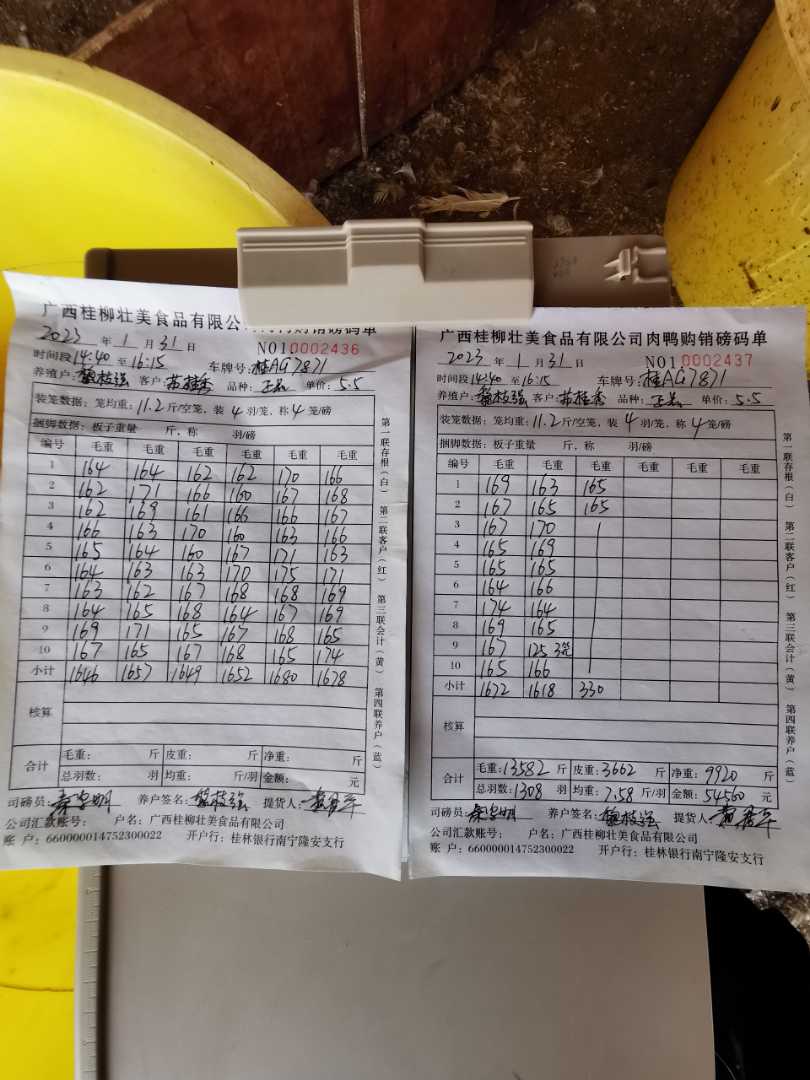 广西桂柳壮美食品有限公
码单
2023 年 1 月 31 日 NO10002436
时间段14:40 至 16:15 车牌号:桂AG7871
养殖户: 枝强 客户: 苏桂秀 品种: 正品 单价: 5.5
装笼数据: 笼均重: 11.2 斤/空笼, 装 4 羽/笼, 称 4 笼/磅
捆脚数据: 板子重量 斤, 称 羽/磅
编号 毛重 毛重 毛重 毛重 毛重 毛重
1 164 164 162 162 170 166
2 162 171 166 160 167 168
3 162 169 161 166 166 167
4 166 163 170 160 163 166
5 165 164 160 167 171 163
6 164 163 163 170 175 171
7 163 162 167 168 168 169
8 164 165 168 164 167 169
9 169 171 165 167 168 165
10 167 165 167 168 165 174
小计 1646 1657 1649 1652 1680 1678
核算
合计 毛重: 斤 皮重: 斤 净重: 斤
总羽数: 羽 均重: 斤/羽 金额: 元
司磅员: 养户签名: 枝强 提货人:
公司汇款账号: 户名: 广西桂柳壮美食品有限公司
账 户: 660000014752300022 开户行: 桂林银行南宁隆安支行
第一联存根(白) 第二联客户(红) 第三联会计(黄) 第四联养户(蓝)
广西桂柳壮美食品有限公司肉鸭购销磅码单
2023 年 1 月 31 日 NO10002437
时间段14:40 至16:15 车牌号:桂AG7871
养殖户: 枝强 客户: 苏桂秀 品种: 正品 单价: 5.5
装笼数据: 笼均重: 11.2 斤/空笼, 装 4 羽/笼, 称 4 笼/磅
捆脚数据: 板子重量 斤, 称 羽/磅
编号 毛重 毛重 毛重 毛重 毛重 毛重
1 169 163 165
2 167 165 165
3 167 170
4 165 169
5 165 165
6 164 166
7 174 164
8 169 165
9 167 125 3笼
10 165 166
小计 1672 1618 330
核算
合计 毛重: 13582 斤 皮重: 3662 斤 净重: 9920 斤
总羽数: 1308 羽 均重: 7.58 斤/羽 金额: 54560 元
司磅员: 养户签名: 枝强 提货人
公司汇款账号: 户名: 广西桂柳壮美食品有限公司
账 户: 660000014752300022 开户行: 桂林银行南宁隆安支行
第一联存根(白) 第二联客户(红) 第三联会计(黄) 第四联养户(蓝)